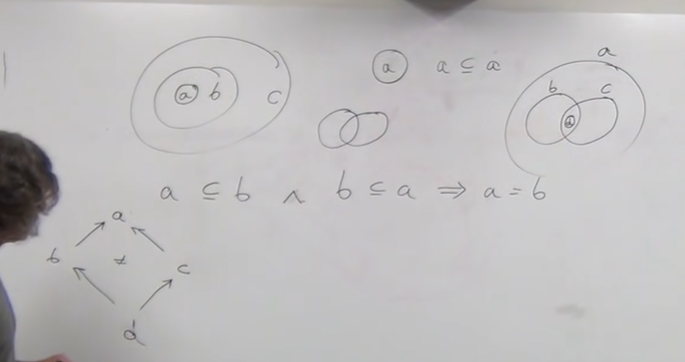 a b c
a a ⊆ a
a
b c
a
a ⊆ b ∧ b ⊆ a ⇒ a = b
a
b ≠ c
d